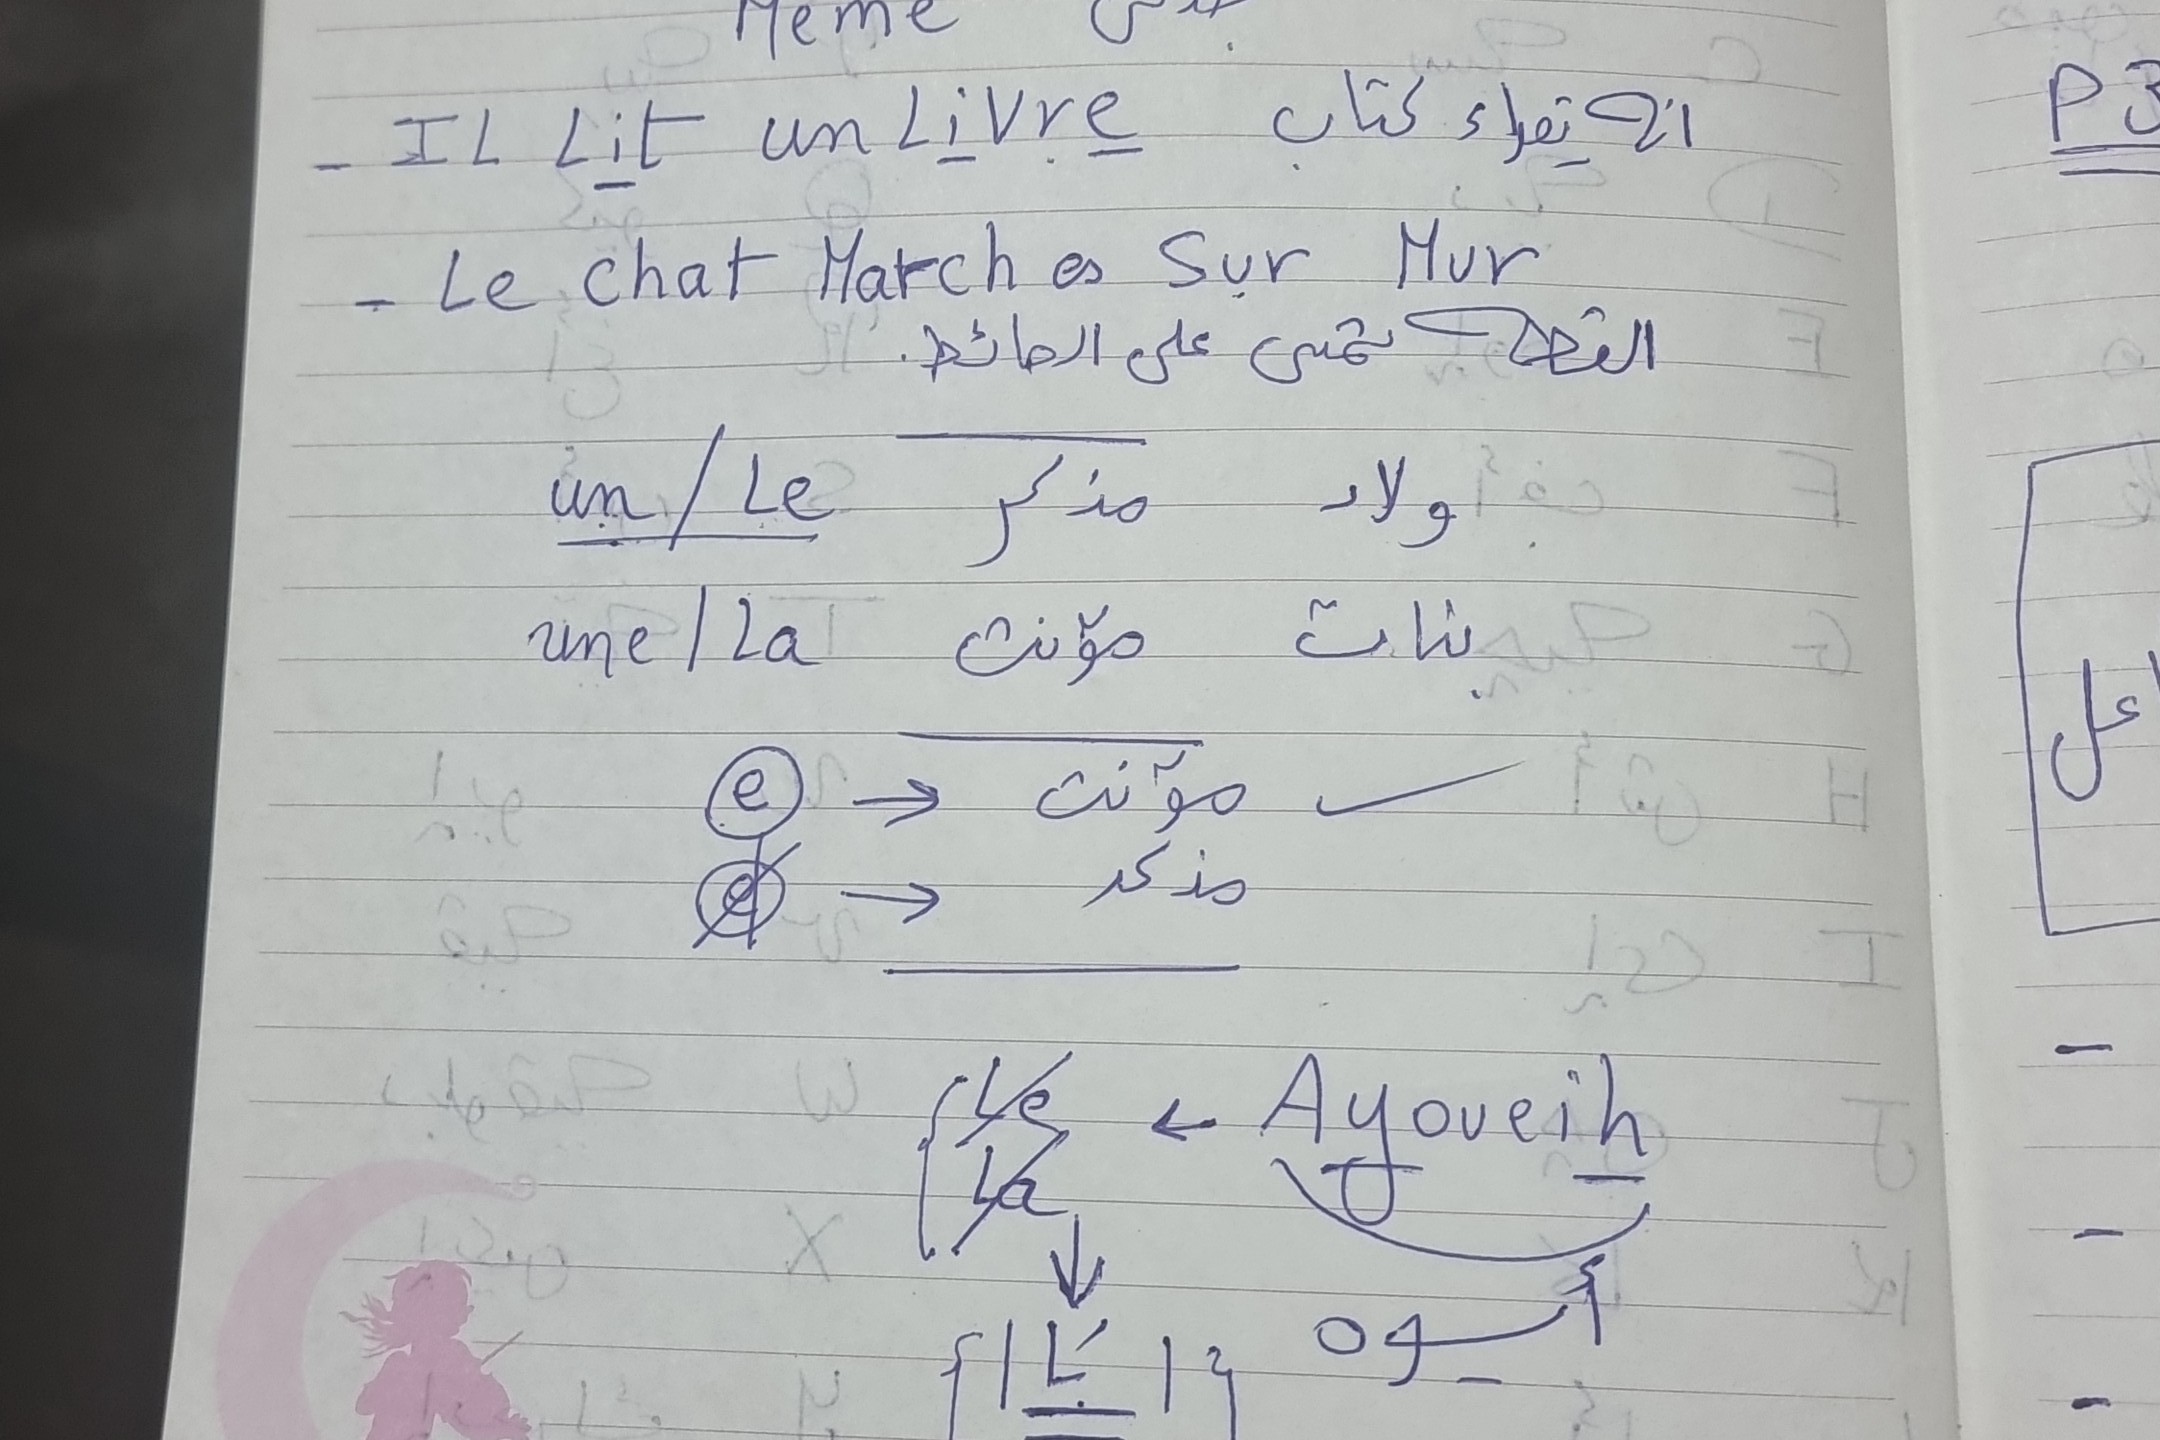 Meme
- IL Lit un Livre انه يقراء كتاب
- Le chat March es Sur Mur
القطه تمشى على الحائط.
un / Le مذكر ولاد
une / La مؤنث بنات
e → مؤنث
e → مذكر
Le ← Ayoueih
La
L'
P3